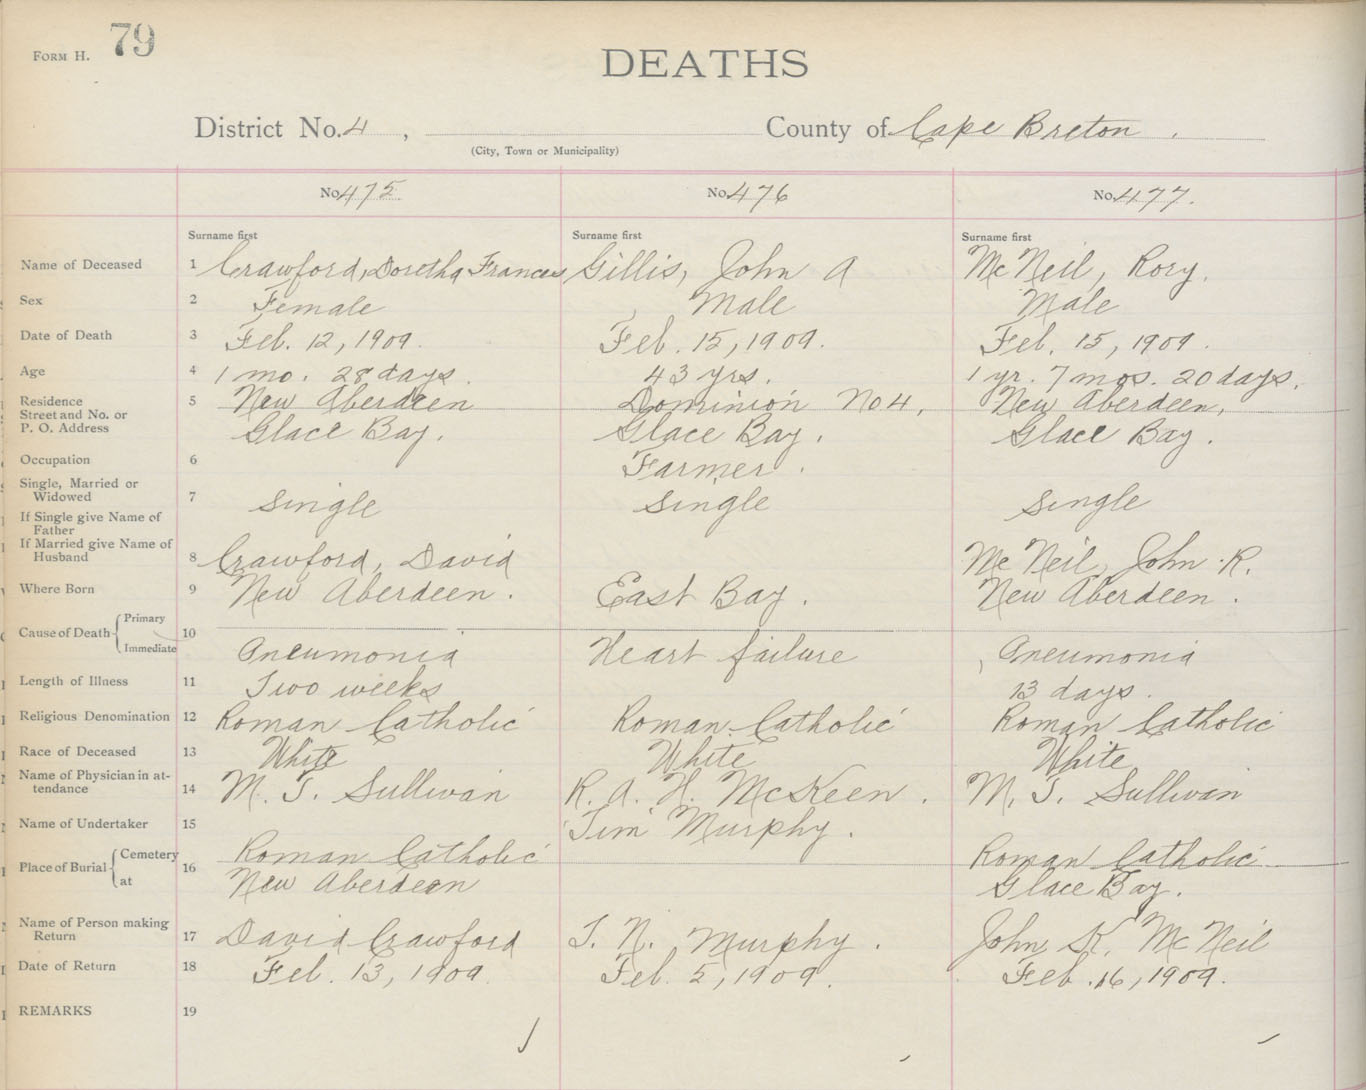 FORM H. 79
DEATHS
District No. 4, County of Cape Breton.
(City, Town or Municipality)
No. 475. No. 476 No. 477.
Surname first Surname first Surname first
Name of Deceased 1 Crawford, Doretha Frances Gillis, John A McNeil, Rory.
Sex 2 Female Male Male
Date of Death 3 Feb. 12, 1909. Feb. 15, 1909. Feb. 15, 1909.
Age 4 1 mo. 28 days. 43 yrs. 1 yr. 7 mos. 20 days.
Residence 5 New Aberdeen Dominion No 4, New Aberdeen,
Street and No. or
P. O. Address Glace Bay. Glace Bay. Glace Bay.
Occupation 6 Farmer.
Single, Married or
Widowed 7 Single Single Single
If Single give Name of
Father
If Married give Name of
Husband 8 Crawford, David McNeil, John R.
Where Born 9 New Aberdeen. East Bay. New Aberdeen.
Cause of Death Primary 10
Immediate Pneumonia Heart failure Pneumonia
Length of Illness 11 Two weeks 13 days.
Religious Denomination 12 Roman Catholic Roman Catholic Roman Catholic
Race of Deceased 13 White White White
Name of Physician in at-
tendance 14 M. T. Sullivan R. A. H. McKeen. M. T. Sullivan
Name of Undertaker 15 Jim Murphy.
Place of Burial Cemetery 16 Roman Catholic Roman Catholic
at New Aberdeen Glace Bay.
Name of Person making
Return 17 David Crawford J. N. Murphy. John K. McNeil
Date of Return 18 Feb. 13, 1909 Feb. 5, 1909. Feb. 16, 1909.
REMARKS 19